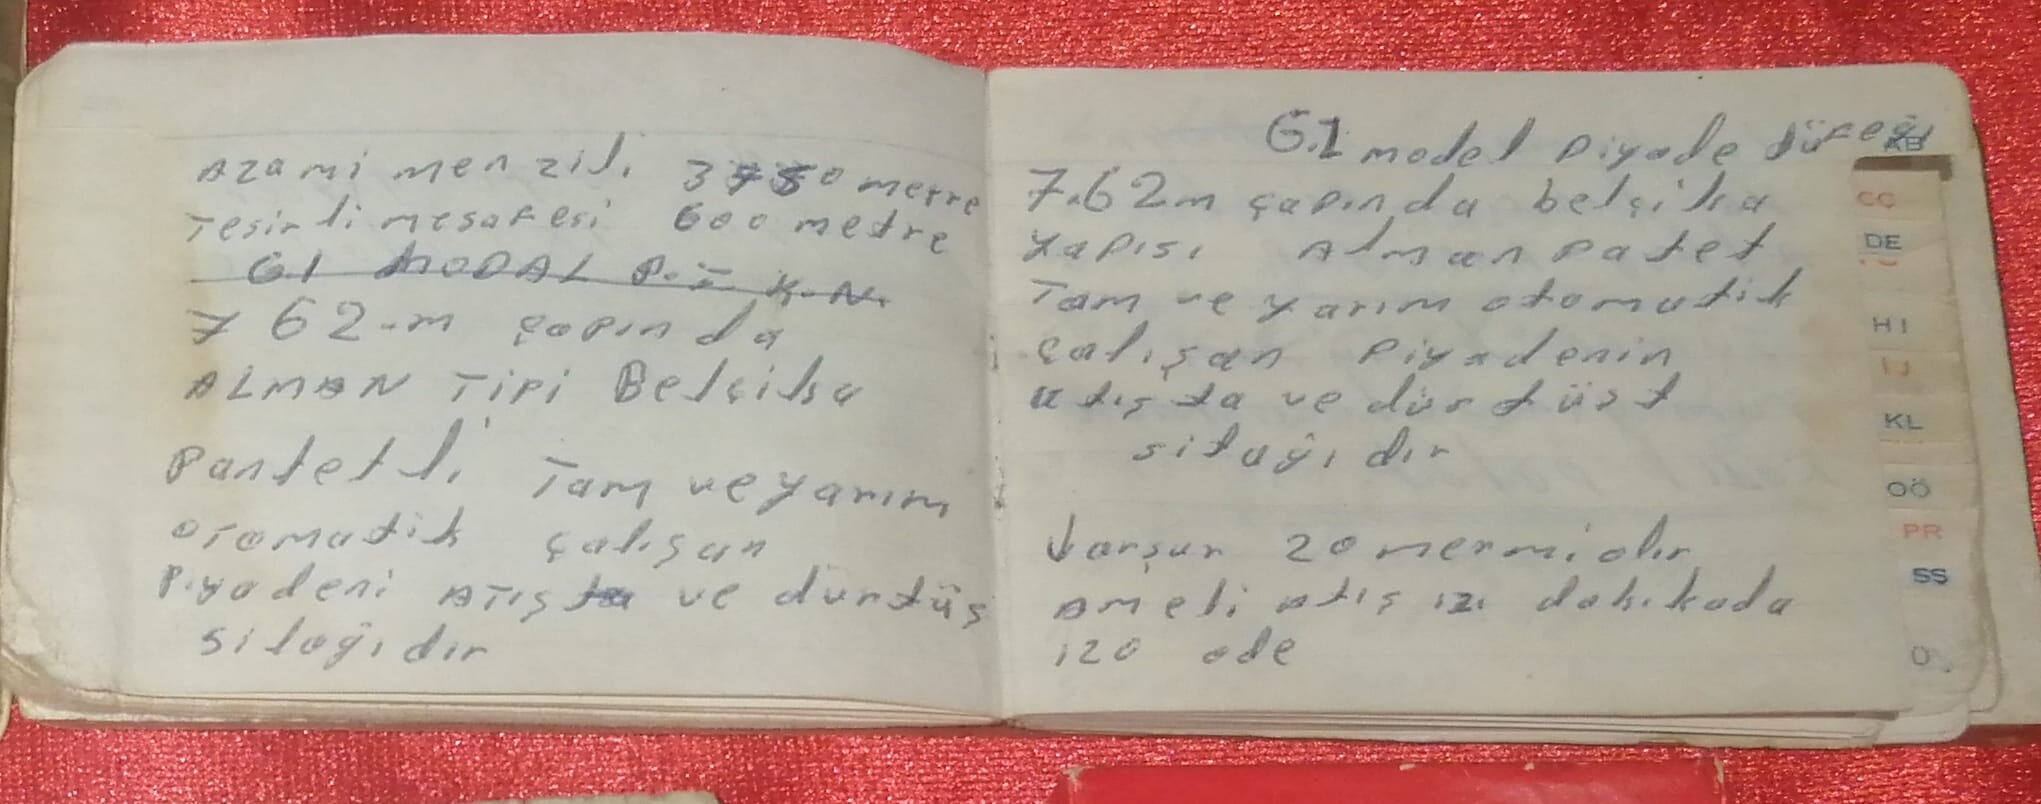 Azami menzili 3750 metre
Tesirli mesafesi 600 metre
G1 MODAL P.T K.N.
7 62-m çapında
ALMAN TİPİ Belçika
Pantetli Tam ve yarım
otomatik çalışan
Piyadeni ATIŞ ta ve durtüş
silağıdır
G.1 model Piyade tüfeği
7.62m çapında belçika
yapısı Alman Patet
Tam ve yarım otomatik
çalışan Piyadenin
atış ta ve dürtüst
silağıdır
Jarşur 20 mermidir
Ameli atış ızı dakıkada
120 ade
AB
CÇ
DE
HI
IJ
KL
OÖ
PR
SS